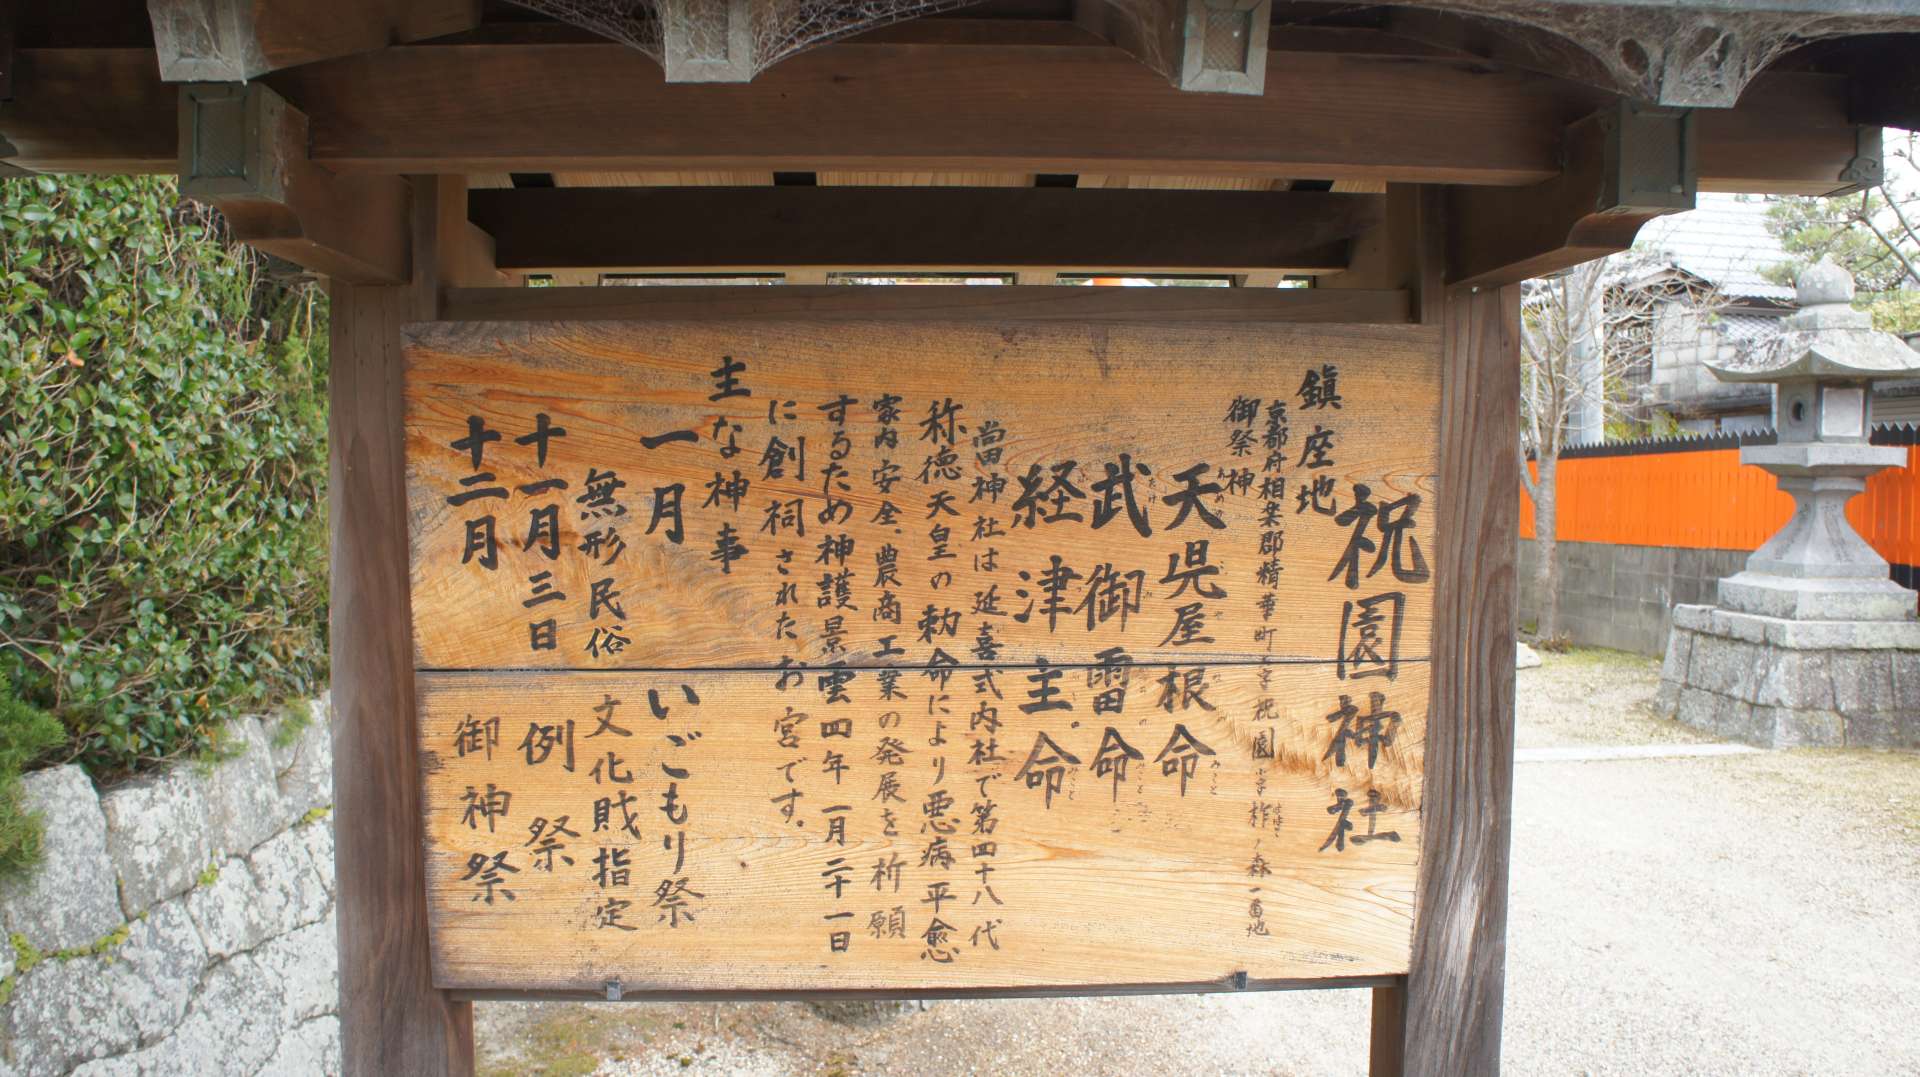 祝園神社
鎮座地
京都府相楽郡精華町字祝園小字柞ノ森一番地
御祭神
天児屋根命
武御雷命
経津主命
当神社は延喜式内社で第四十八代
称徳天皇の勅命により悪病平愈
家内安全、農商工業の発展を祈願
するため神護景雲四年一月二十一日
に創祠されたお宮です。
主な神事
一月 いごもり祭
無形民俗文化財指定
十一月三日 例祭
十二月 御神祭